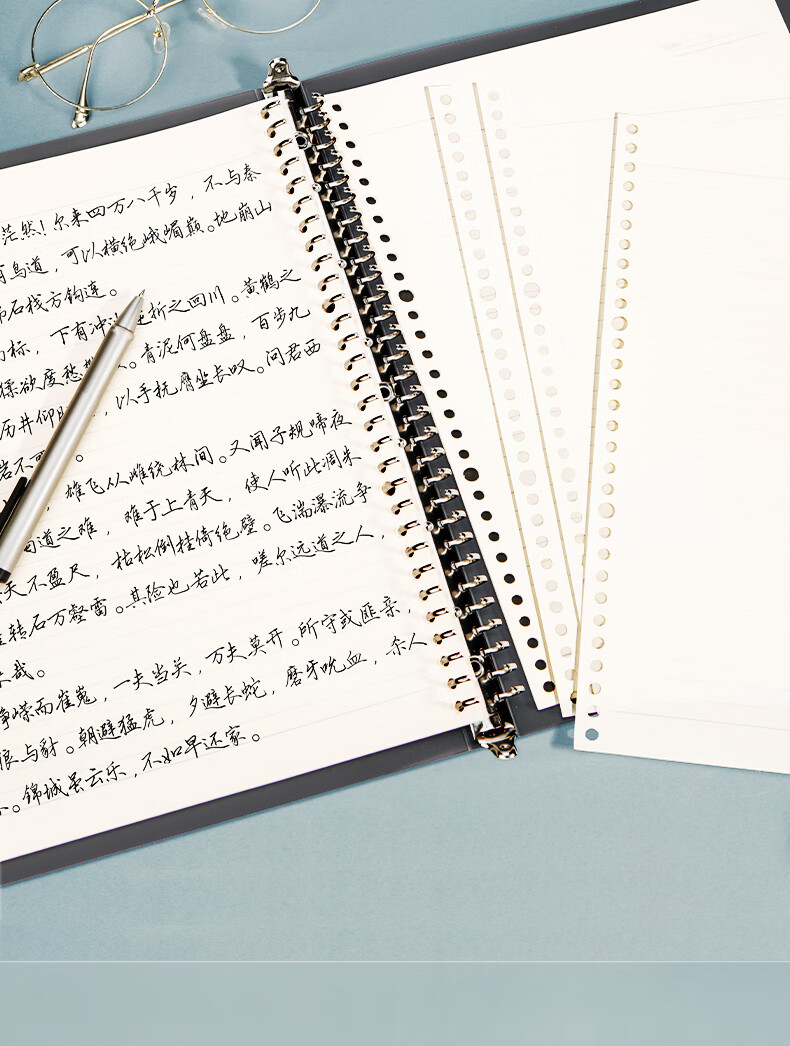 茫然!尔来四万八千岁,不与秦
有鸟道,可以横绝峨嵋巅。地崩山
石栈方钩连。
标,下有冲 折之回川。黄鹤之
猱欲度愁 。青泥何盘盘,百步九
历井仰 ,以手抚膺坐长叹。问君西
岩不 。
,雄飞从雌绕林间。又闻子规啼夜
道之难,难于上青天,使人听此凋朱
天不盈尺,枯松倒挂倚绝壁。飞湍瀑流争
转石万壑雷。其险也若此,嗟尔远道之人,
哉。
嵘而崔嵬,一夫当关,万夫莫开。所守或匪亲,
狼与豺。朝避猛虎,夕避长蛇,磨牙吮血,杀人
。锦城虽云乐,不如早还家。